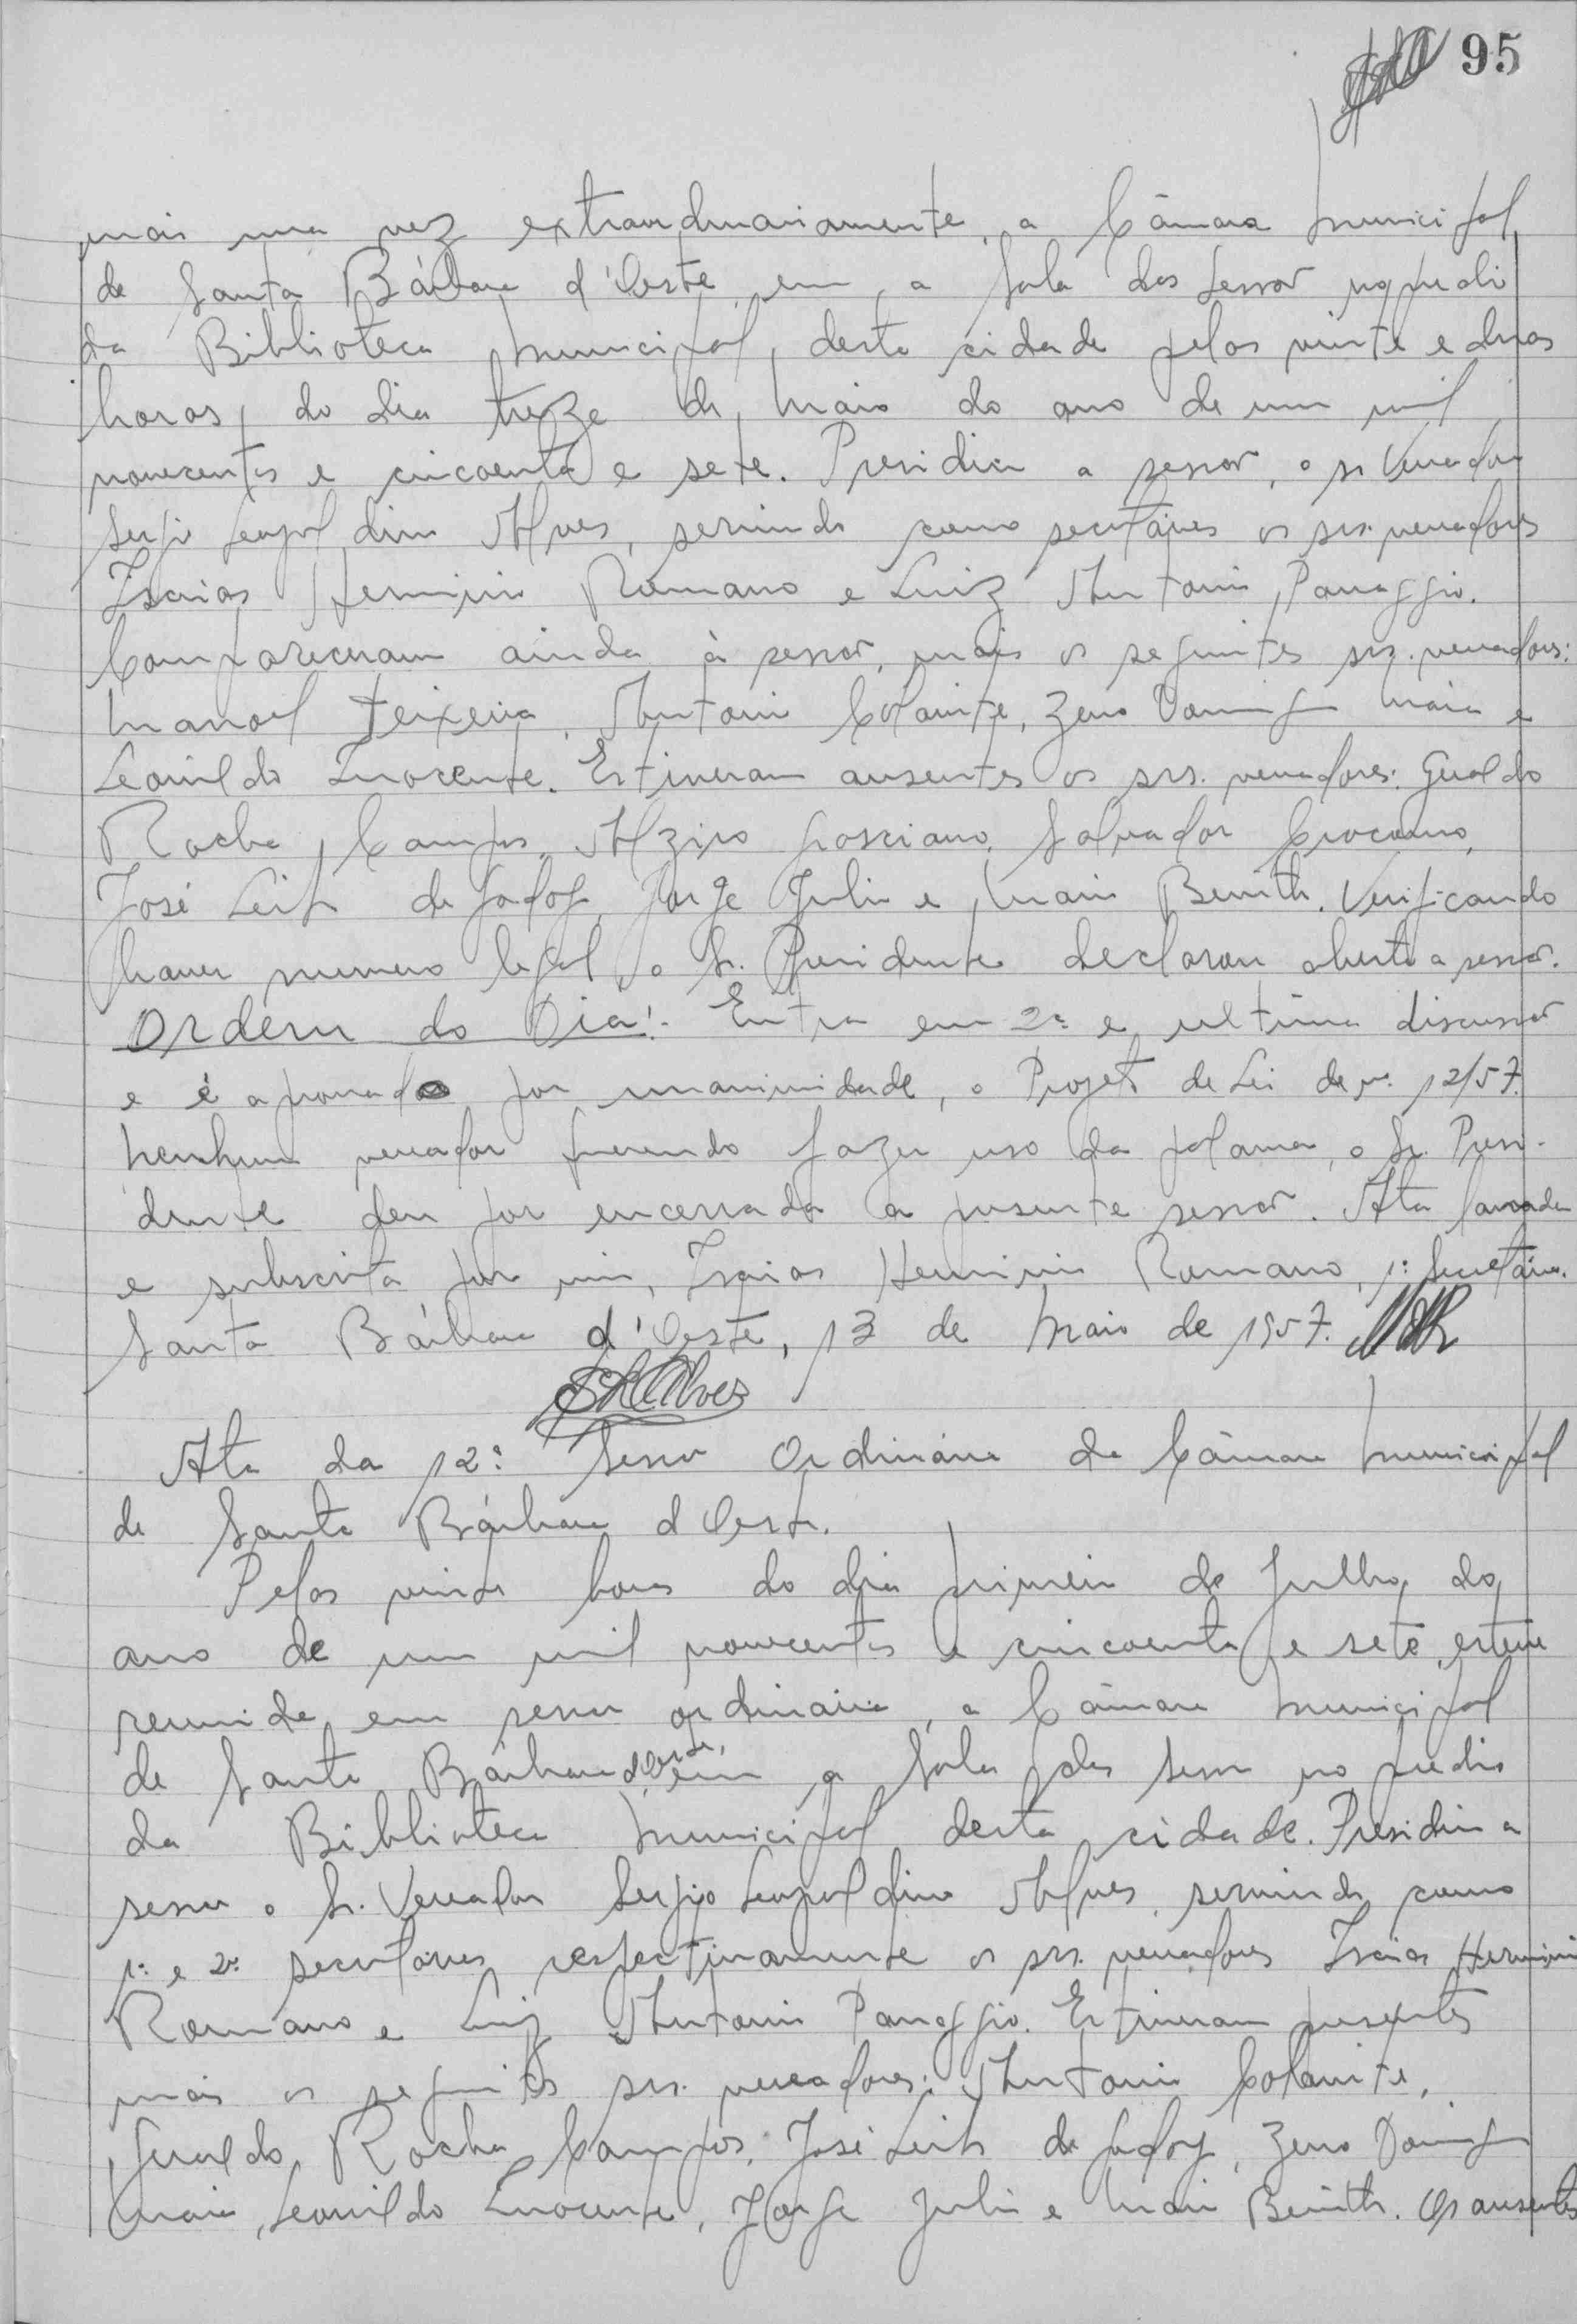 95
mais uma vez extraordinariamente, a Câmara Municipal
de Santa Bárbara d'Oeste, em a Sala das Sessões no predio
da Biblioteca Municipal, desta cidade pelas vinte e duas
horas, do dia treze de Maio do ano de um mil
novecentos e cincoenta e sete. Presidiu a sessão, o sr Vereador
Sergio Leopoldino Alves, servindo como secretários os srs. vereadores
Isaias Herminio Romano e Luiz Antonio Panaggio.
Compareceram ainda à sessão, mais os seguintes srs. vereadores:
Manoel Teixeira, Antonio Colamite, Zeno Domingos Maia e
Leonildo Inocente. Estiveram ausentes os srs. vereadores: Geraldo
Rocha Campos, Alziro Salvador
José Leite de Godoy, Jorge Julio e Mario Benith. Verificando
haver numero legal, o Sr. Presidente declarou aberta a sessão.
Ordem do Dia:- Entra em 2ª e ultima discussão
e é aprovado por unanimidade, o Projeto de Lei de nº 12/57.
Nenhum vereador querendo fazer uso da palavra, o Sr. Presi-
dente deu por encerrada a presente sessão. Ata lavrada
e subscrita por mim, Isaias Herminio Romano, 1º Secretário.
Santa Bárbara d'Oeste, 13 de Maio de 1957.
SLAlves
Ata da 12ª Sessão Ordinária da Câmara Municipal
de Santa Bárbara d'Oeste.
Pelas vinte horas do dia primeiro de Julho do
ano de um mil novecentos e cincoenta e sete, esteve
reunida em sessão ordinária, a Câmara Municipal
de Santa Bárbara d'Oeste, em a Sala das Sessões no predio
da Biblioteca Municipal desta cidade. Presidiu a
sessão o Sr. Vereador Sergio Leopoldino Alves, servindo como
1º e 2º secretários respectivamente os srs. vereadores Isaias Herminio
Romano e Luiz Antonio Panaggio. Estiveram presentes
mais os seguintes srs. vereadores: Antonio Colamite,
Geraldo Rocha Campos, José Leite de Godoy, Zeno Domingos
Maia, Leonildo Inocente, Jorge Julio e Mario Benith. Os ausentes